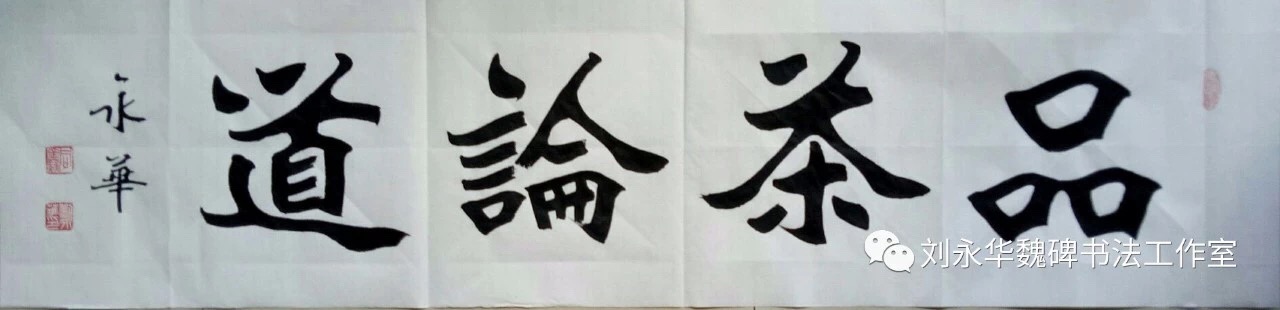 品茶論道
永華
刘永华魏碑书法工作室